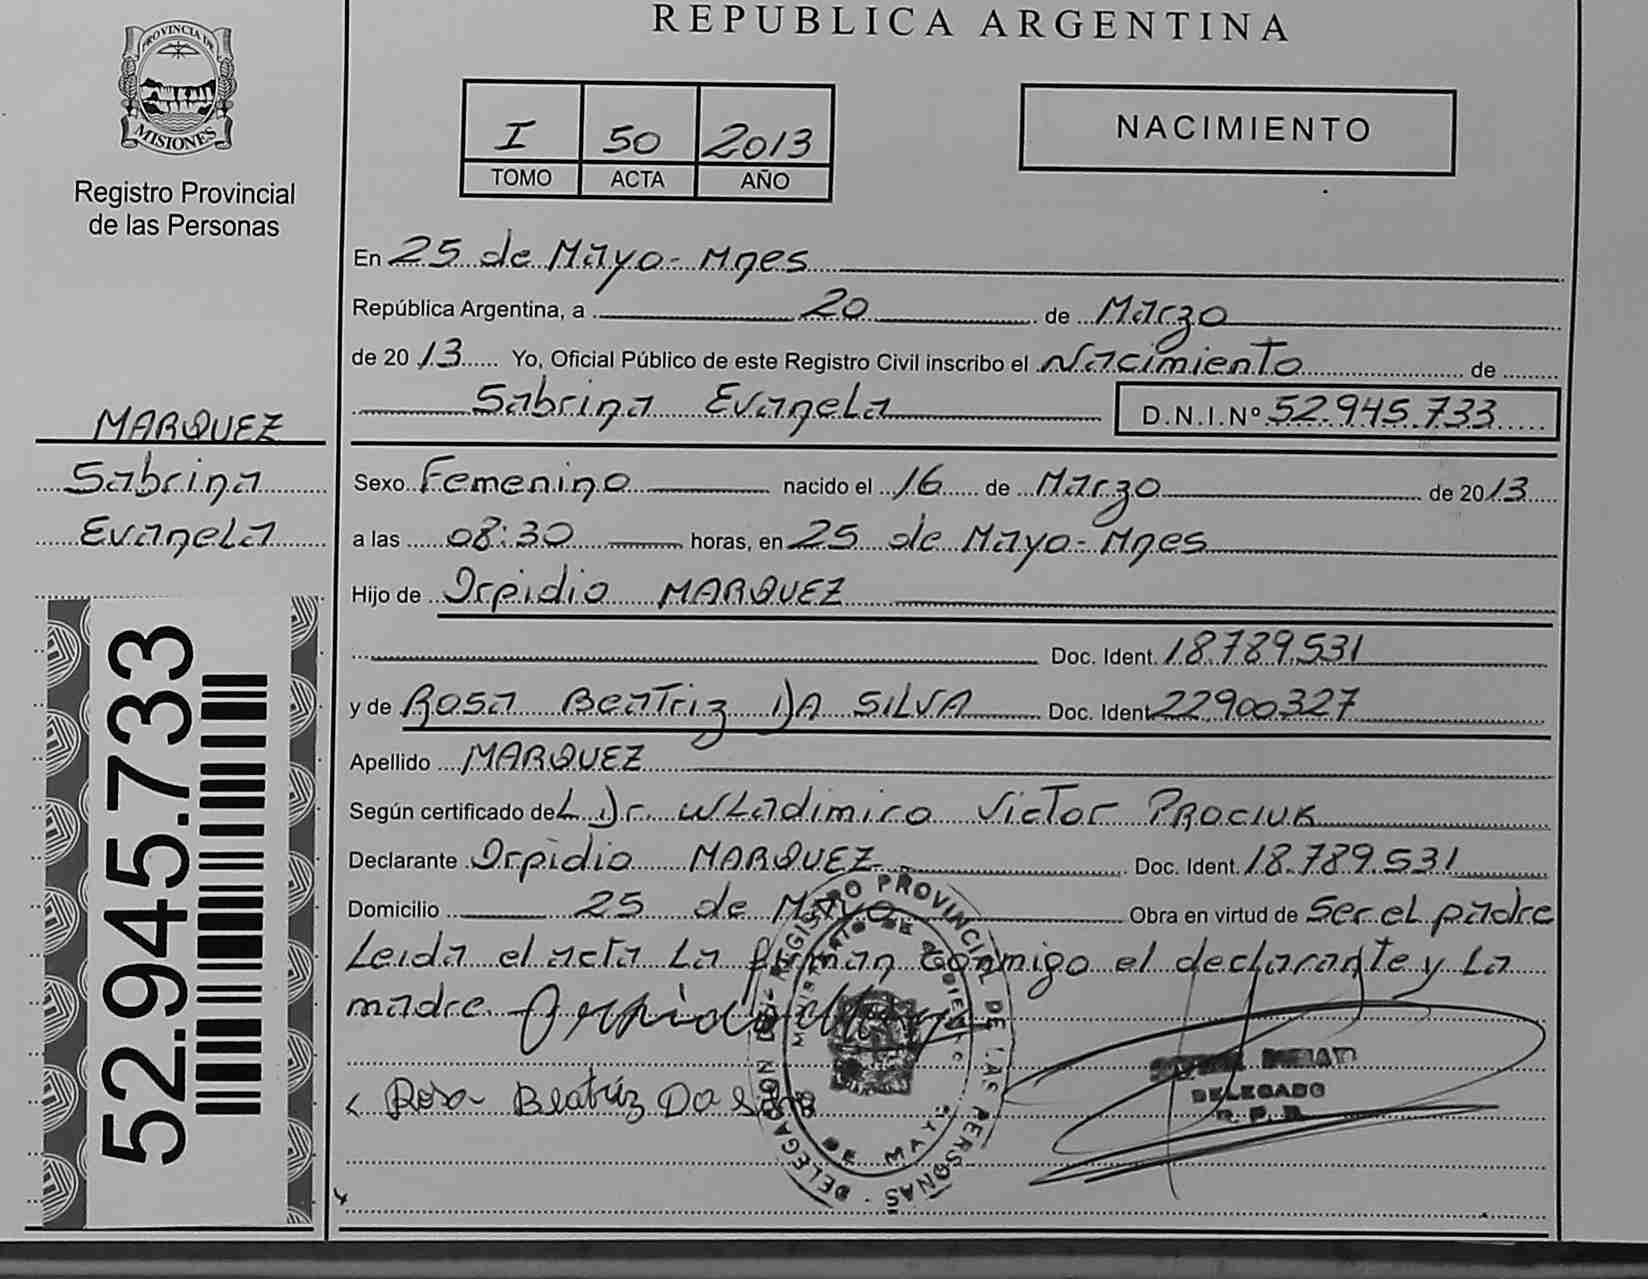 REPUBLICA ARGENTINA
PROVINCIA DE
MISIONES
Registro Provincial
de las Personas
I 50 2013
TOMO ACTA AÑO
NACIMIENTO
En 25 de Mayo - Mnes
República Argentina, a 20 de Marzo
de 2013 Yo, Oficial Público de este Registro Civil inscribo el Nacimiento de
Sabrina Evangela D.N.I.Nº 52.945.733
MARQUEZ
Sabrina
Evangela
Sexo Femenino nacido el 16 de Marzo de 2013
a las 08:30 horas, en 25 de Mayo - Mnes
Hijo de Orpidio MARQUEZ
Doc. Ident. 18.789.531
y de ROSA BEATRIZ DA SILVA Doc. Ident 22900327
Apellido MARQUEZ
Según certificado deL Dr. WLadimiro Victor PROCIUK
Declarante Orpidio MARQUEZ Doc. Ident. 18.789.531
Domicilio 25 de Mayo Obra en virtud de Ser el padre
Leida el acta La firman conmigo el declarante y La
madre
Rosa Beatriz Da Silva
52.945.733
REGISTRO PROVINCIAL DE LAS PERSONAS
DE MAYO
DELEGADO